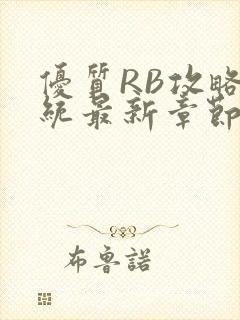 優質RB攻略
統最新章節
布魯諾